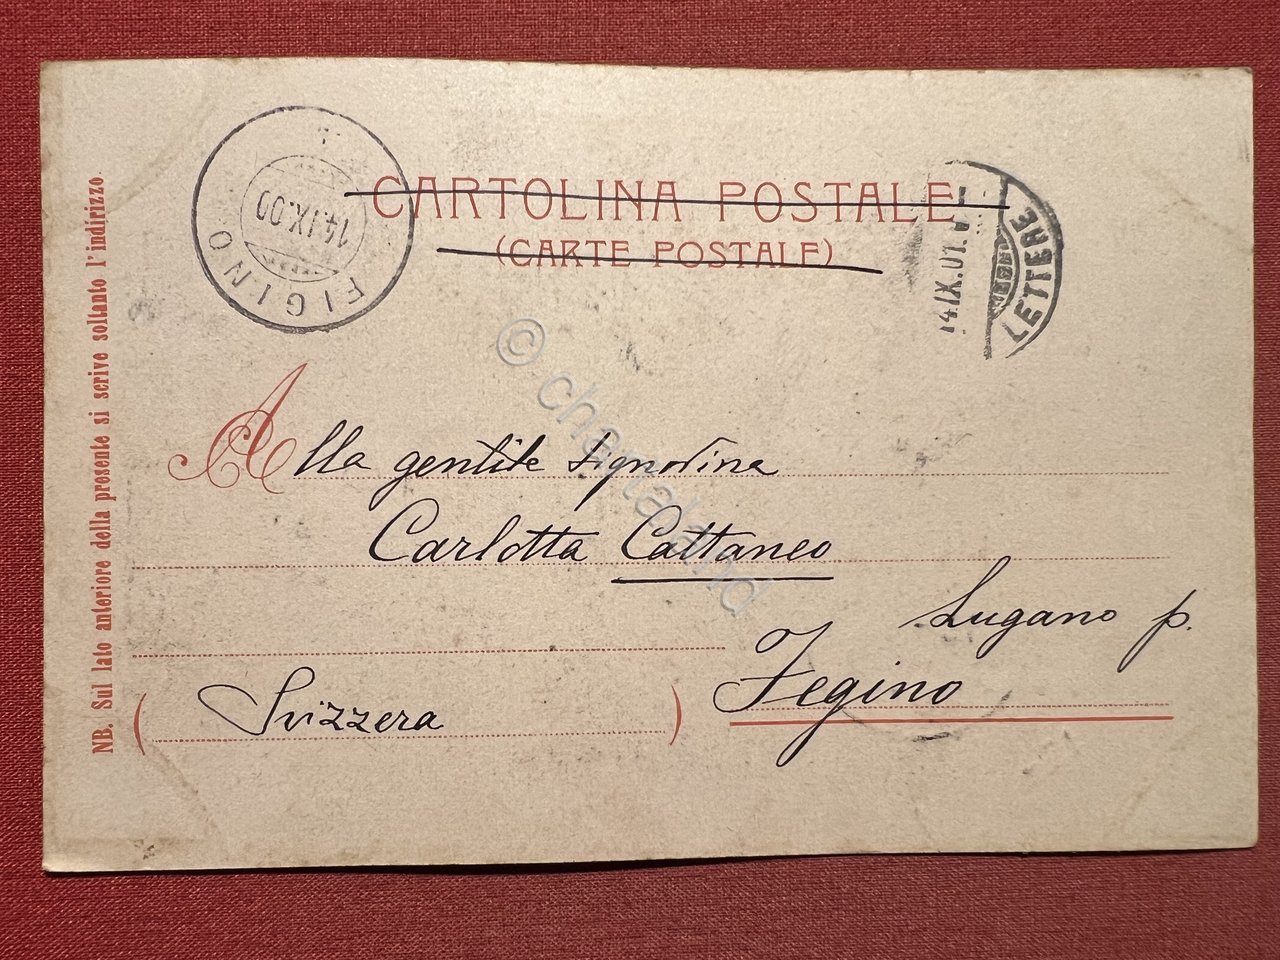 CARTOLINA POSTALE
(CARTE POSTALE)
FIGINO
14.IX.00
14.IX.01.
LETTERE
NB. Sul lato anteriore della presente si scrive soltanto l'indirizzo.
Alla gentile Signorina
Carlotta Cattaneo
Lugano p.
Fegino
(Svizzera)
© chartaland